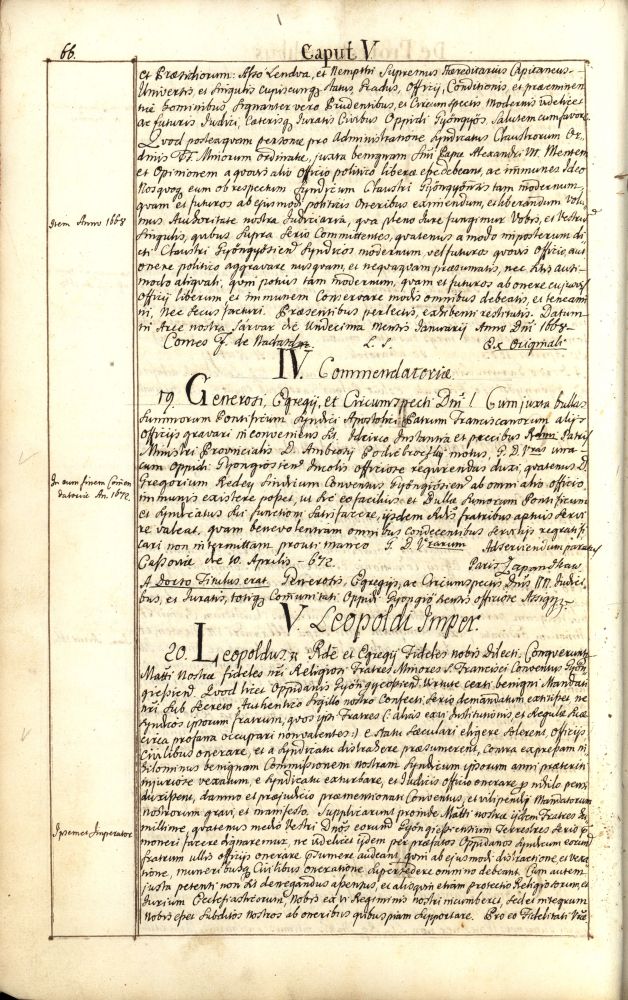 66.
Caput V
et Præsidiorum: Also Lendva, et Nempthi Supremus Hæreditarius Capitaneus.
Universis, et Singulis cujuscunq3 status, Gradus, Officij, Conditionis, et præeminen
tiæ hominibus, Signanter vero Prudentibus, et Circumspectis Modernis videlicet
ac futuris Judici, Cæterisq3 Juratis Civibus Oppidi Gyöngyös. Salutem cum favore.
Quod posteaquam personæ pro Administratione Syndicatus Claustrorum Or
dinis Minorum ordinatæ, juxta benignam Papæ Alexandri Mentem
et Opinionem a quovis alio officio politico liberæ esse debeant, ac immunes Ideo
Nosquoq3 eum ob respectum Syndicum Claustri Gyöngyösiens tam modernum,
quam et futuros ab ejusmodi politicis Oneribus eximendum, et liberandum volu
Item Anno 1668
mus Authoritate nostra Judiciaria, qua pleno Jure fungimur Vobis, et Vestrum
Singulis, quibus supra serio Committentes, quatenus a modo inposterum di
cti Claustri Gyöngyösiens Syndicos modernum, vel futuros quovis Officio, aut
onere politico aggravare nusquam, et nequaquam præsumatis, nec sitis ausi
modo aliquali, quin potius tam modernum, quam et futuros ab onere cujusvis
Officij liberum et immunem Conservare modis omnibus debeatis, et teneami
ni, Nec secus facturi. Præsentibus perlectis, exhibenti restitutis. Datum
in Arce nostra Sarvar die Undecima Mensis Januarij Anno Dni 1668
Comes F. de Nadasdin. L. S. Ex Originali
IV. Commendatoriæ.
19. Generosi, Egregij, et Circumspecti Dni! Cum juxta bullas
Summorum Pontificum Syndici Apostolici Patrum Franciscanorum alijs
officijs gravari inconveniens sit. Idcirco Instantia et precibus Patris
Ministri Provincialis D. Ambrosij motus, G. D. Vras una
cum Oppidi Gyöngyösiens Incolis officiose requirendas duxi, quatenus D.
In eum finem Comen
datoriæ An. 1672.
Gregorium Redey Sindicum Conventus Gyöngyösiens ab omni alio officio,
immunis existere posset, ut sic eo facilius et Bullæ Sumorum Pontificum
et Syndicatus sui functioni satisfacere, ijsdem Rdis fratribus aptius servi
re valeat, quam benevolentiam omnibus condecentibus servitijs regratifi
cari non intermittam prouti maneo G. D. Vrarum Ad serviendum paratus
Cassoviæ die 10. Aprilis - 672. Paris
A Dorso Titulus erat Generosis, Egregijs, ac Circumspectis Dnis NN. Judici
bus, et Juratis, totiq3 Communitati Oppidi Gyöngiösiensis officiose
V. Leopoldi Imper.
20. Leopoldus et Rde et Egregij Fideles nobis Dilecti. Conqueruntur
Matti Nostræ fideles nri Religiosi Fratres Minores S. Francisci Conventus Gyön
giesiens. Quod licet Oppidanis Gyöngyesiens Virtute certi benigni Mandati
nri Sub Secreto Authentico Sigillo nostro Confecti serio demandatum extitisset ne
Syndicos ipsorum fratrum, quos ipsi Fratres (:alias ex vi Institutionis et Regulæ suæ
circa profana occupari non valentes:) e Statu Sæculari eligere solerent, officijs
Civilibus onerare, et a Syndicatu distrahere præsumerent, contra expressam ni
hilominus benignam Commissionem nostram Syndicum ipsorum anni præteriti
injuriose vexatum, e Syndicatu exturbare, et Judicis officio onerare p nihilo pens
duxissent, damno et præjudicio præmentionati Conventus, et vilipendij Mandatorum
nostrorum gravi, et manifesto. Supplicarunt proinde Matti nostræ ijdem Fratres hu
Ipsemet Imperator
millime, quatenus medio Vestri nos eorund Gyöngiessensium Terrestres serio
moneri facere dignaremur, ne videlicet ijdem per præfatos Oppidanos Syndicum eorund
fratrum ullis officijs onerare præsumere audeant, quin ab ejusmodi distractione, et vexa
tione, muneribusq3 Civilibus oneratione supersedere omnino debeant. Cum autem
justa petenti non sit denegandus assensus, et alioquin etiam protectio Religiosorum et
Jurium Ecclesiasticorum, Nobis ex vi Regiminis nostri incumberet, sed et integrum
Nobis esset Subditos nostros ab oneribus quibuspiam supportare. Pro eo Fidelitati Vræ